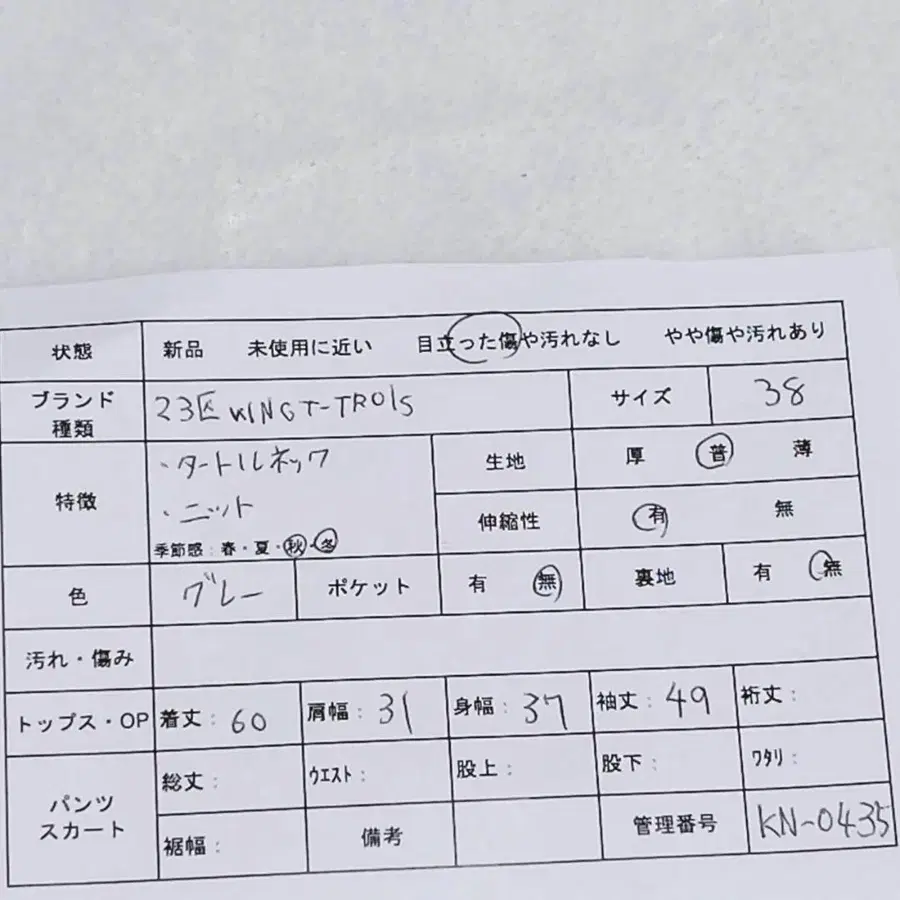 状態 新品 未使用に近い 目立った傷や汚れなし やや傷や汚れあり
ブランド 種類 23区 VINGT-TROIS サイズ 38
特徴 ・タートルネック 生地 厚 普 薄
・ニット 伸縮性 有 無
季節感：春・夏・秋・冬
色 グレー ポケット 有 無 裏地 有 無
汚れ・傷み
トップス・OP 着丈：60 肩幅：31 身幅：37 袖丈：49 裄丈：
パンツ スカート 総丈： ｳｴｽﾄ： 股上： 股下： ﾜﾀﾘ：
裾幅： 備考 管理番号 KN-0435